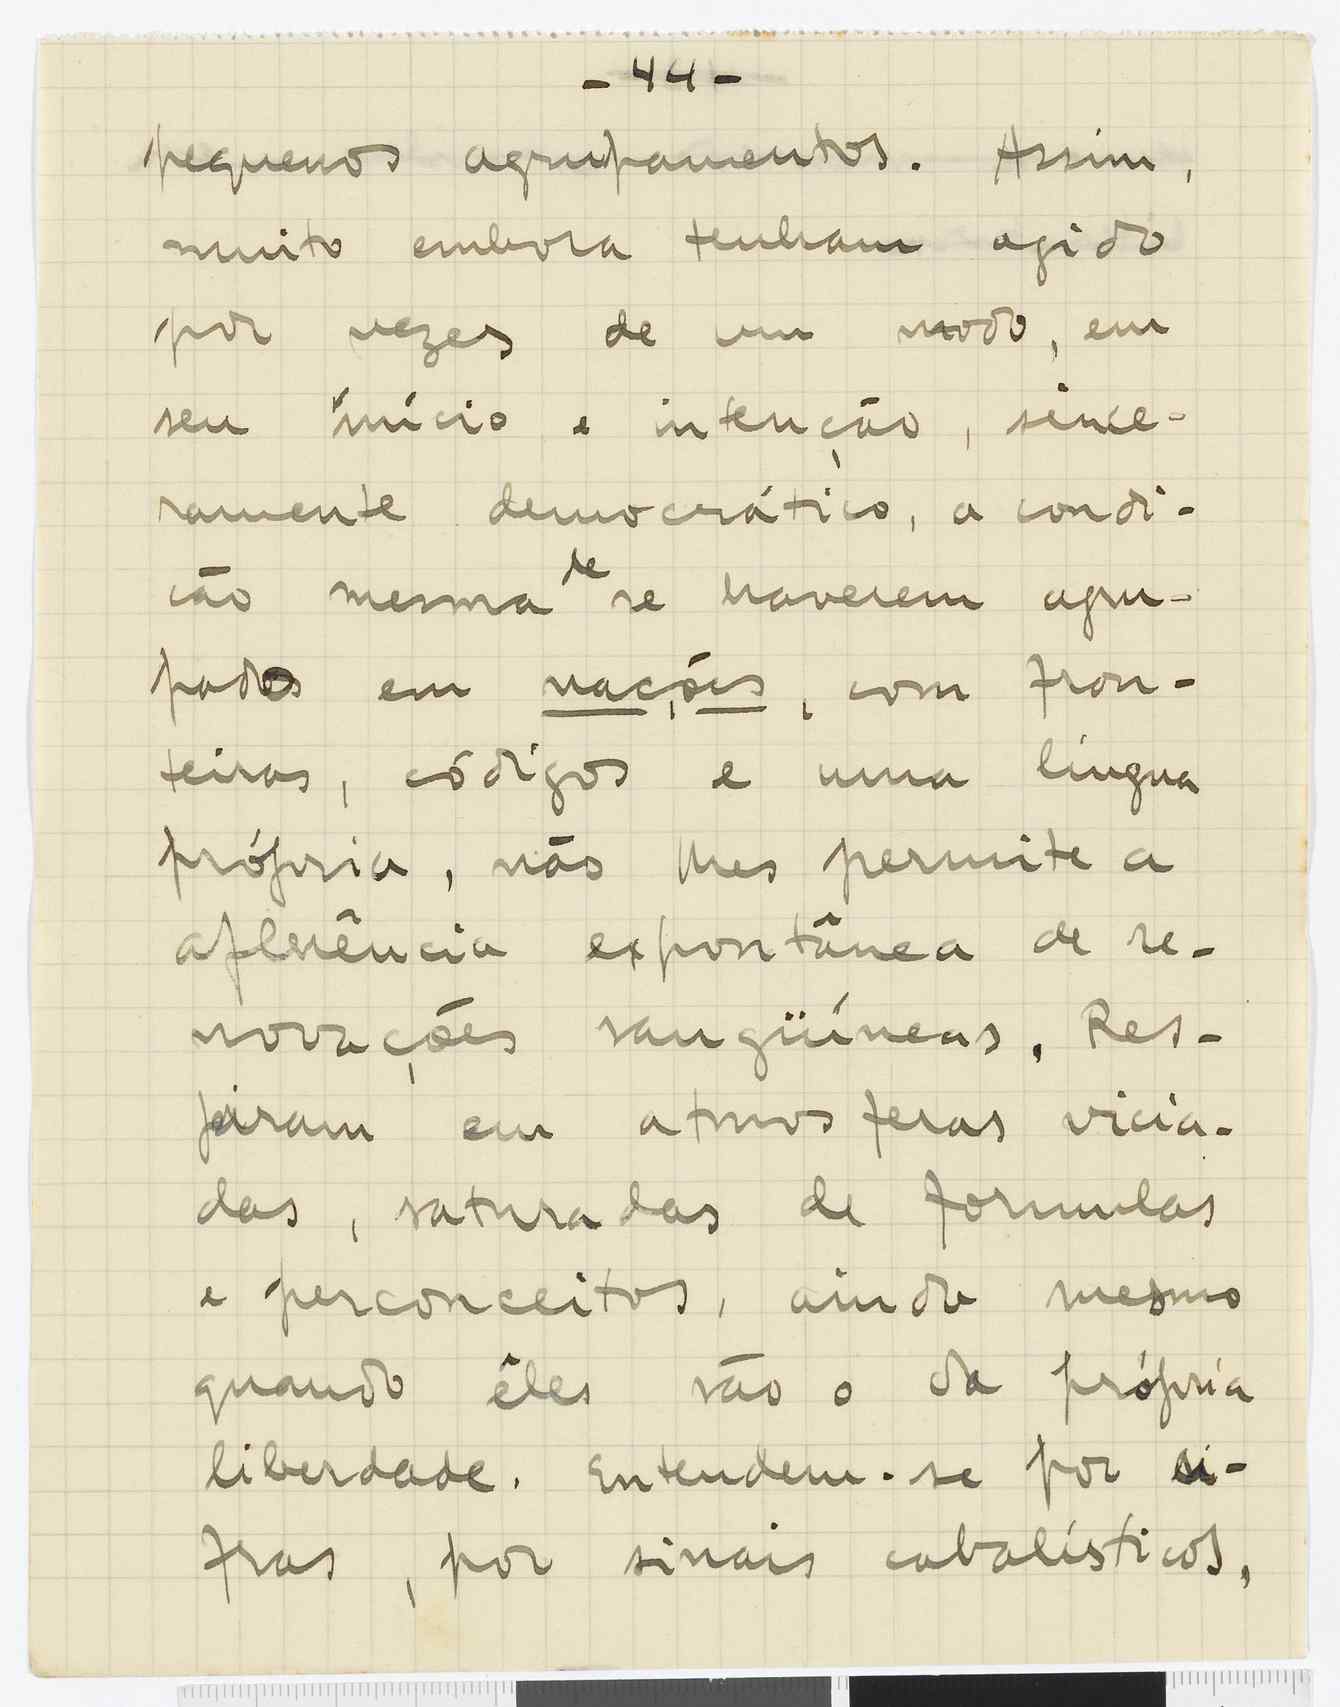 - 44 -
pequenos agrupamentos. Assim,
muito embora tenham agido
por vezes de um modo, em
seu início e intenção, since-
ramente democrático, a condi-
ção mesma de se haverem agru-
pados em nações, com fron-
teiras, códigos e uma língua
própria, não lhes permite a
afluência expontânea de re-
novações sangüíneas. Res-
piram em atmosferas vicia-
das, saturadas de formulas
e perconceitos, ainda mesmo
quando êles são o da própria
liberdade. Entendem-se por si-
fras, por sinais cabalísticos,